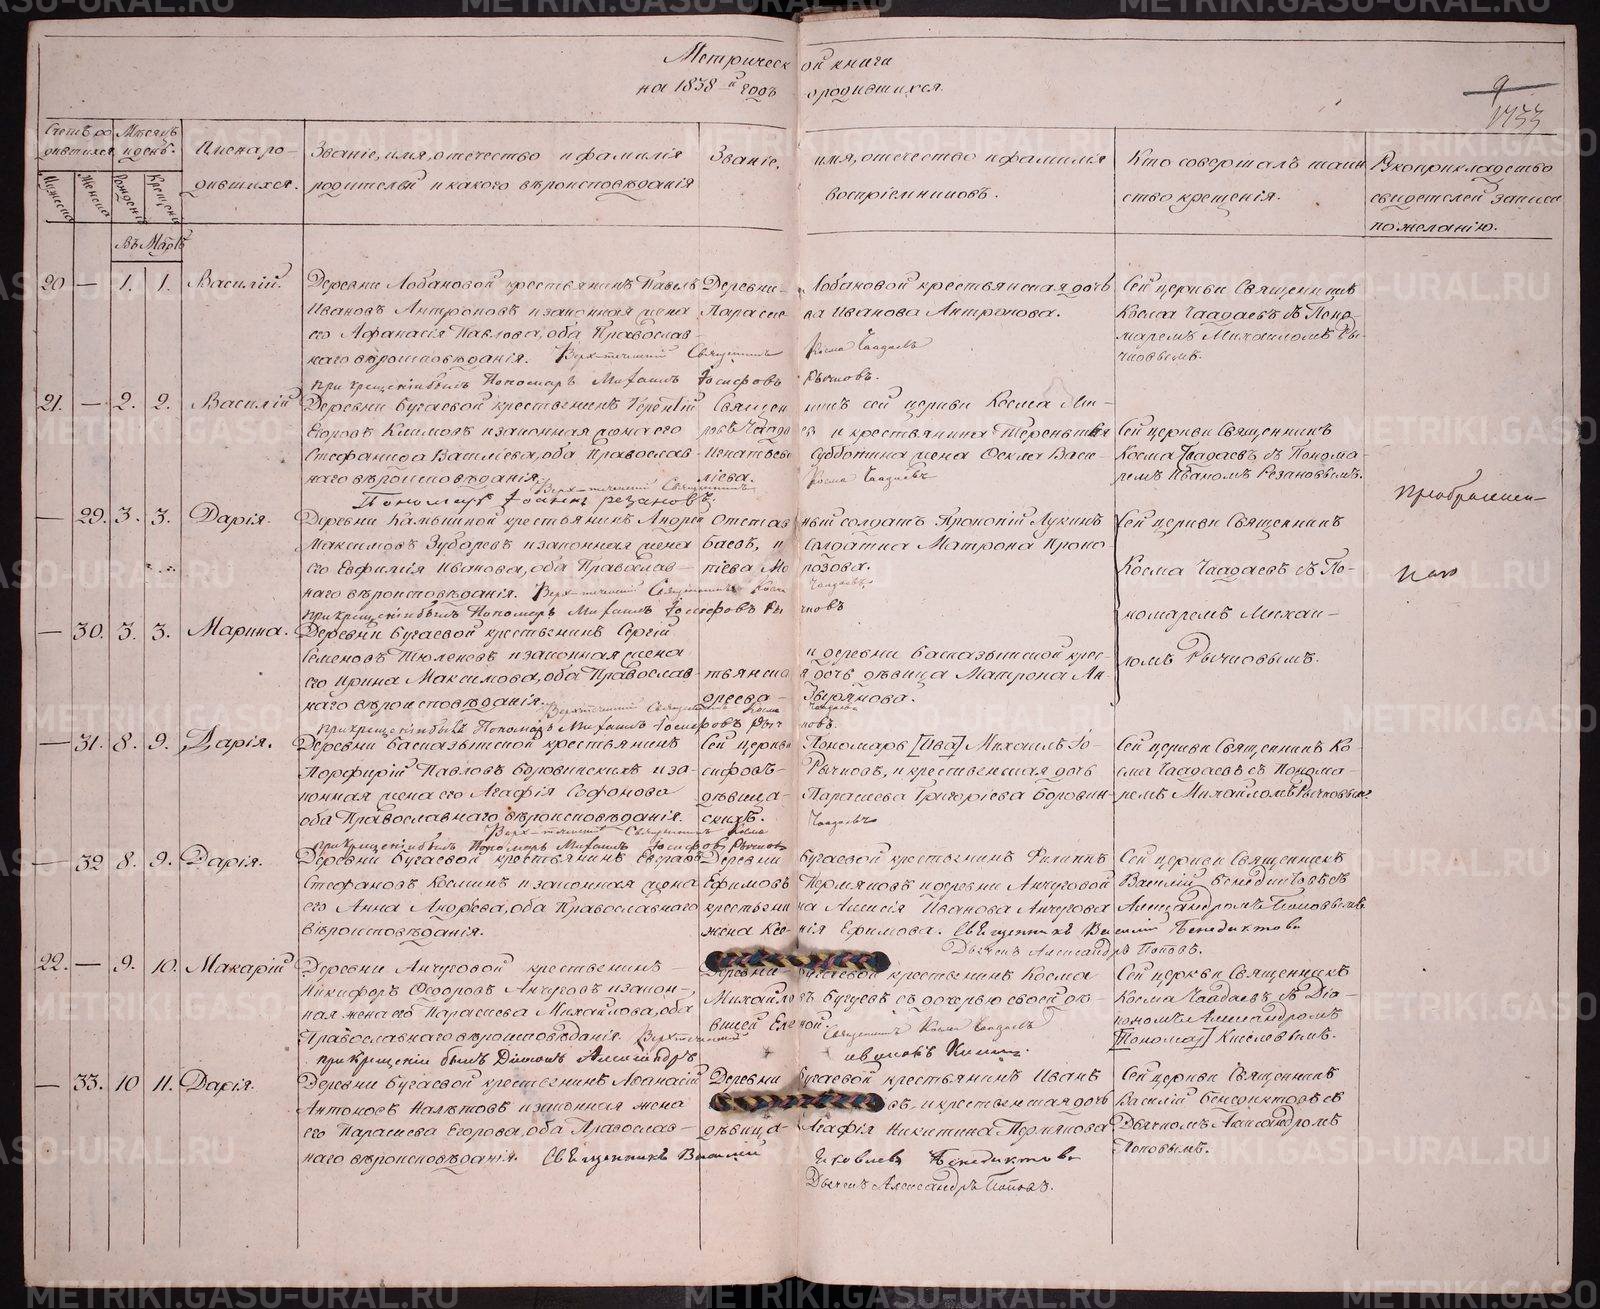 Метрической книги
на 1838-й годъ о родившихся.
9
1733
Счетъ родившихся.
Мѣсяцъ и день.
Имена родившихся.
Званіе, имя, отчество и фамилія родителей и какого вѣроисповѣданія
Званіе, имя, отчество и фамилія воспріемниковъ.
Кто совершалъ таинство крещенія.
Рукоприкладство свидетелей записи по желанію.
Мужеска
Женска
Рожденія
Крещенія
Въ Мартѣ
20 — 1. 1. Василій.
Деревни Лобановой крестьянинъ Павелъ
Ивановъ Антроповъ и законная жена
его Афанасія Павлова, оба Православ-
наго вѣроисповѣданія.
Деревни Лобановой крестьянская дочь
Параскева Иванова Антропова.
Сей церкви Священникъ
Косма Чаадаевъ съ Поно-
маремъ Михаиломъ Ры-
чковымъ.
Священникъ Косма Чаадаевъ
при крещеніи былъ Пономарь Михаилъ Іосифовъ Рычковъ.
21. — 2. 2. Василій
Деревни Бугаевой крестьянинъ Терентій
Егоровъ Климовъ и законная жена его
Стефанида Васильева, оба Православ-
наго вѣроисповѣданія.
Священникъ сей церкви Косма Ми-
и крестьянина Терентья
Игнатьева Субботина жена Фекла Васи-
ліева.
Сей церкви Священникъ
Косма Чаадаевъ съ Понома-
ремъ Иваномъ Резановымъ.
Священникъ Косма Чаадаевъ
Пономарь Іоаннъ Резановъ
— 29. 3. 3. Дарія.
Деревни Камышной крестьянинъ Андрей
Максимовъ Зубаревъ и законная жена
его Евфимія Иванова, оба Православ-
наго вѣроисповѣданія.
Отставный солдатъ Прокопій Лукинъ
Баевъ, и солдатка Матрона Проко-
піева Морозова.
Сей церкви Священникъ
Косма Чаадаевъ съ По-
номаремъ Михаи-
ломъ Рычковымъ.
Священникъ Косма Чаадаевъ
при крещеніи былъ Пономарь Михаилъ Іосифовъ Рычковъ
— 30. 3. 3. Марина.
Деревни Бугаевой крестьянинъ Сергій
Семеновъ Тюленевъ и законная жена
его Ирина Максимова, оба Православ-
наго вѣроисповѣданія.
и деревни Басказыкской крес-
тьянская дочь дѣвица Матрона Ан-
дреева
Священникъ Косма Чаадаевъ
при крещеніи былъ Пономарь Михаилъ Іосифовъ Рычковъ.
— 31. 8. 9. Дарія.
Деревни Басказыкской крестьянинъ
Порфирій Павловъ Боровинскихъ и за-
конная жена его Агафія Софонова
оба Православнаго вѣроисповѣданія.
Сей церкви Пономарь [Ива] Михаилъ Іо-
сифовъ Рычковъ, и крестьянская дочь
дѣвица Параскева Григоріева Боровин-
скихъ.
Сей церкви Священникъ Ко-
сма Чаадаевъ съ Понома-
ремъ Михаиломъ Рычковымъ.
Священникъ Косма Чаадаевъ
при крещеніи былъ Пономарь Михаилъ Іосифовъ Рычковъ
— 32 8. 9. Дарія.
Деревни Бугаевой крестьянинъ Евграфъ
Стефановъ Косминъ и законная жена
его Анна Андреева, оба Православнаго
вѣроисповѣданія.
Деревни Бугаевой крестьянинъ Филиппъ
Ефимовъ Пермяковъ и деревни Анчуговой
крестьянина Алексія Иванова Анчугова
жена Ксенія Ефимова.
Сей церкви Священникъ
Василій Бенедиктовъ съ
Александромъ Поповымъ
Священникъ Василій Бенедиктовъ
Дьячекъ Александръ Поповъ.
22. — 9. 10. Макарій
Деревни Анчуговой крестьянинъ
Никифоръ Ѳедоровъ Анчуговъ и закон-
ная жена его Параскева Михайлова, оба
Православнаго вѣроисповѣданія.
Деревни Бугаевой крестьянинъ Косма
Михайловъ Бугуевъ съ дочерью своей дѣ-
вицей Еленой.
Сей церкви Священникъ
Косма Чаадаевъ съ Діа-
кономъ Александромъ
[Пономар] Киселевымъ.
Священникъ Косма Чаадаевъ
при крещеніи былъ Діаконъ Александръ
— 33. 10 11. Дарія.
Деревни Бугаевой крестьянинъ Афанасій
Антоновъ Налетовъ и законная жена
его Параскева Егорова, оба Православ-
наго вѣроисповѣданія.
Деревни Бугаевой крестьянинъ Иванъ
евъ, и крестьянская дочь
дѣвица Агафія Никитина Пермякова
Сей церкви Священникъ
Василій Бенедиктовъ съ
Дьячкомъ Александромъ
Поповымъ.
Священникъ Василій Яковлевъ Бенедиктовъ
Дьячекъ Александръ Поповъ.
METRIKI.GASO-URAL.RU